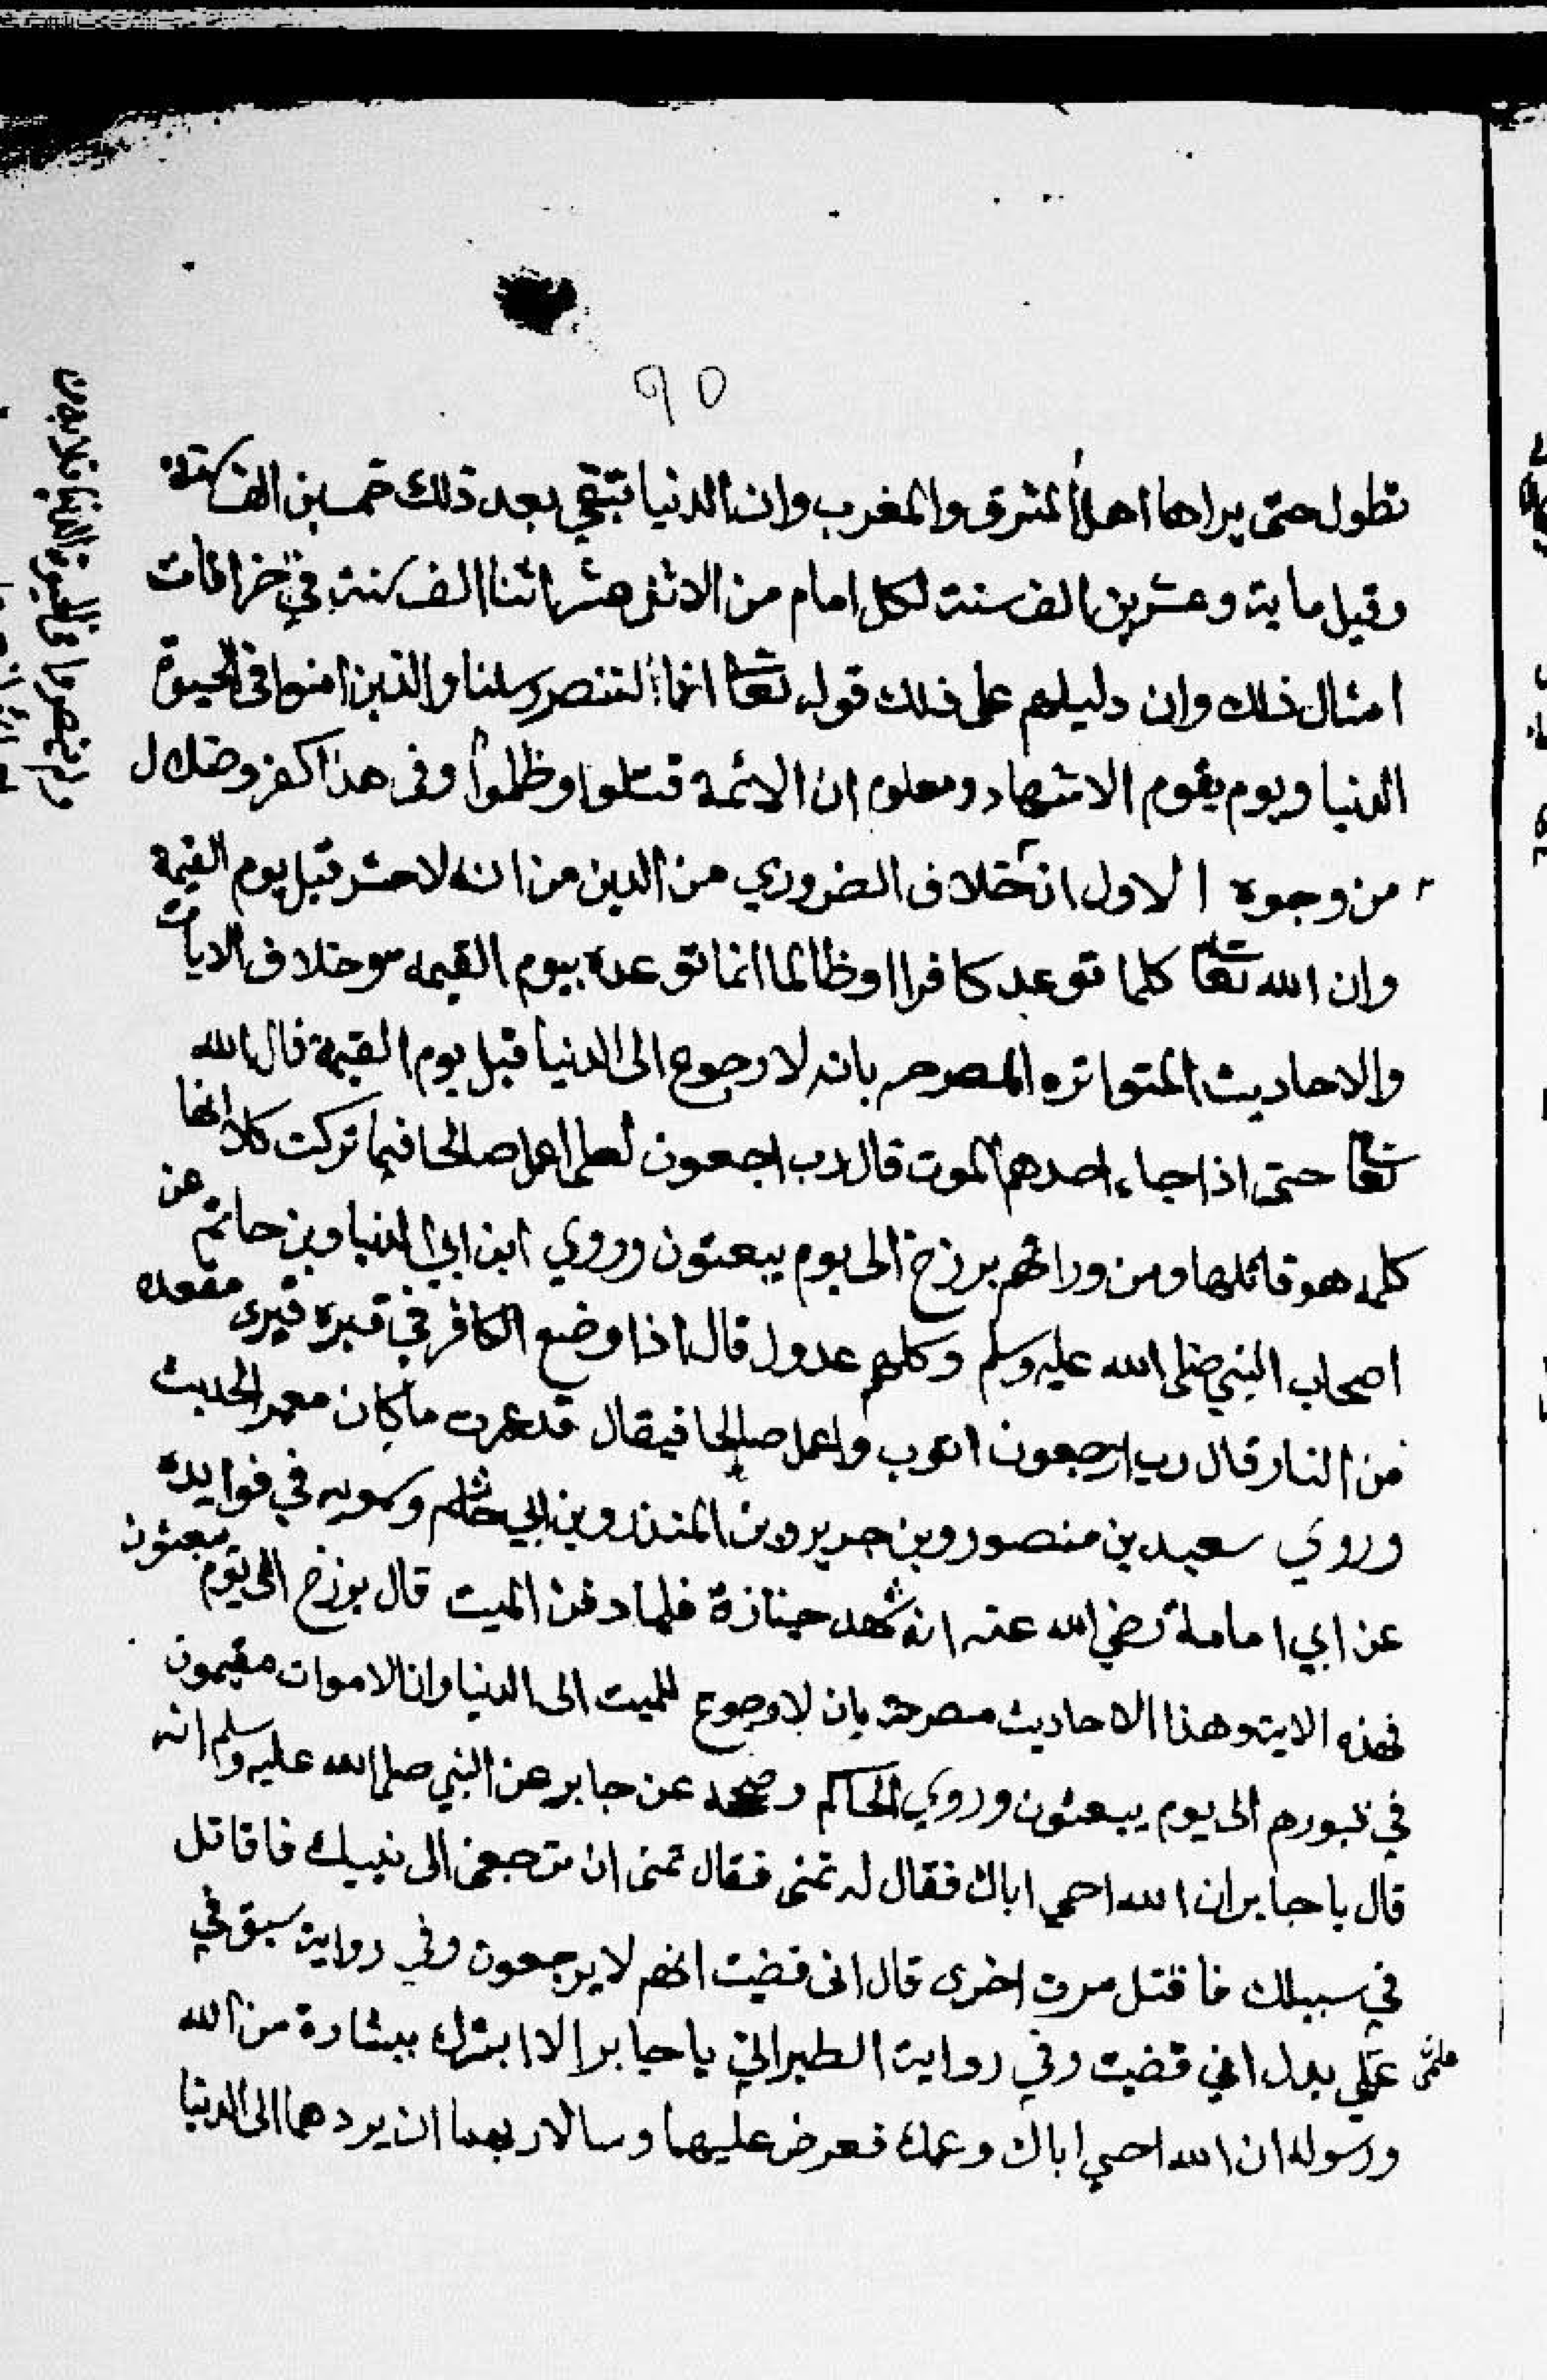 ٩٥
تطول حتى يراها اهل المشرق والمغرب وان الدنيا تبقى بعد ذلك خمسين الف سنة
وقيل ماية وعشرين الف سنة لكل امام من الاثنى عشر اثنا الف سنة في خرافات
امثال ذلك وان دليلهم على ذلك قوله تعا انما لننصر رسلنا والذين امنوا في الحيوة
الدنيا ويوم يقوم الاشهاد ومعلوم ان الائمة قتلوا وظلموا وفي هذا كفر وضلال
من وجوه الاول انه خلاف الضروري من الدين من انه لا حشر قبل يوم القيمة
وان الله تعا كلما توعد كافرا اوظالما انما توعده بيوم القيمه سو خلاف الايات
والاحاديث المتواتره المصرحه بانه لا رجوع الى الدنيا قبل يوم القيمة قال الله
تعا حتى اذا جاء احدهم الموت قال رب اجعون لعلى اعمل صالحا فيما تركت كلا انها
كلمه هو قائلها ومن ورائهم برزخ الى يوم يبعثون وروي ابن ابي الدنيا وبن حاتم عن
اصحاب النبي صلى الله عليه وسلم وكلهم عدول قال اذا وضع الكافر في قبره فيرى مقعده
من النار قال رب ارجعون اتوب واعمل صالحا فيقال قد عمرت ما كان معمر الحديث
وروي سعيد بن منصور وبن جرير وبن المنذر وبن ابي حاتم وسمويه في فوايده
عن ابي امامة رضي الله عنه انه شهد جنازة فلما دفن الميت قال برزخ الى يوم يبعثون
فهذه الاية وهذا الاحاديث مصرحة بان لا رجوع للميت الى الدنيا وان الاموات مقيمون
في قبورهم الى يوم يبعثون وروي الحاكم وصححه عن جابر عن النبي صلى الله عليه وسلم انه
قال يا جابر ان الله احى اباك فقال له تمنى فقال تمنى ان ترجعنى الى نبيك فاقاتل
في سبيلك فاقتل مرة اخرى قال انى قضيت انهم لا يرجعون وفي رواية سبق في
علمى بدل اني قضيت وفي رواية الطبراني يا جابر الا ابشرك ببشارة من الله
ورسوله ان الله احي اباك وعمك فعرض عليهما وسالا ربهما ان يردهما الى الدنيا